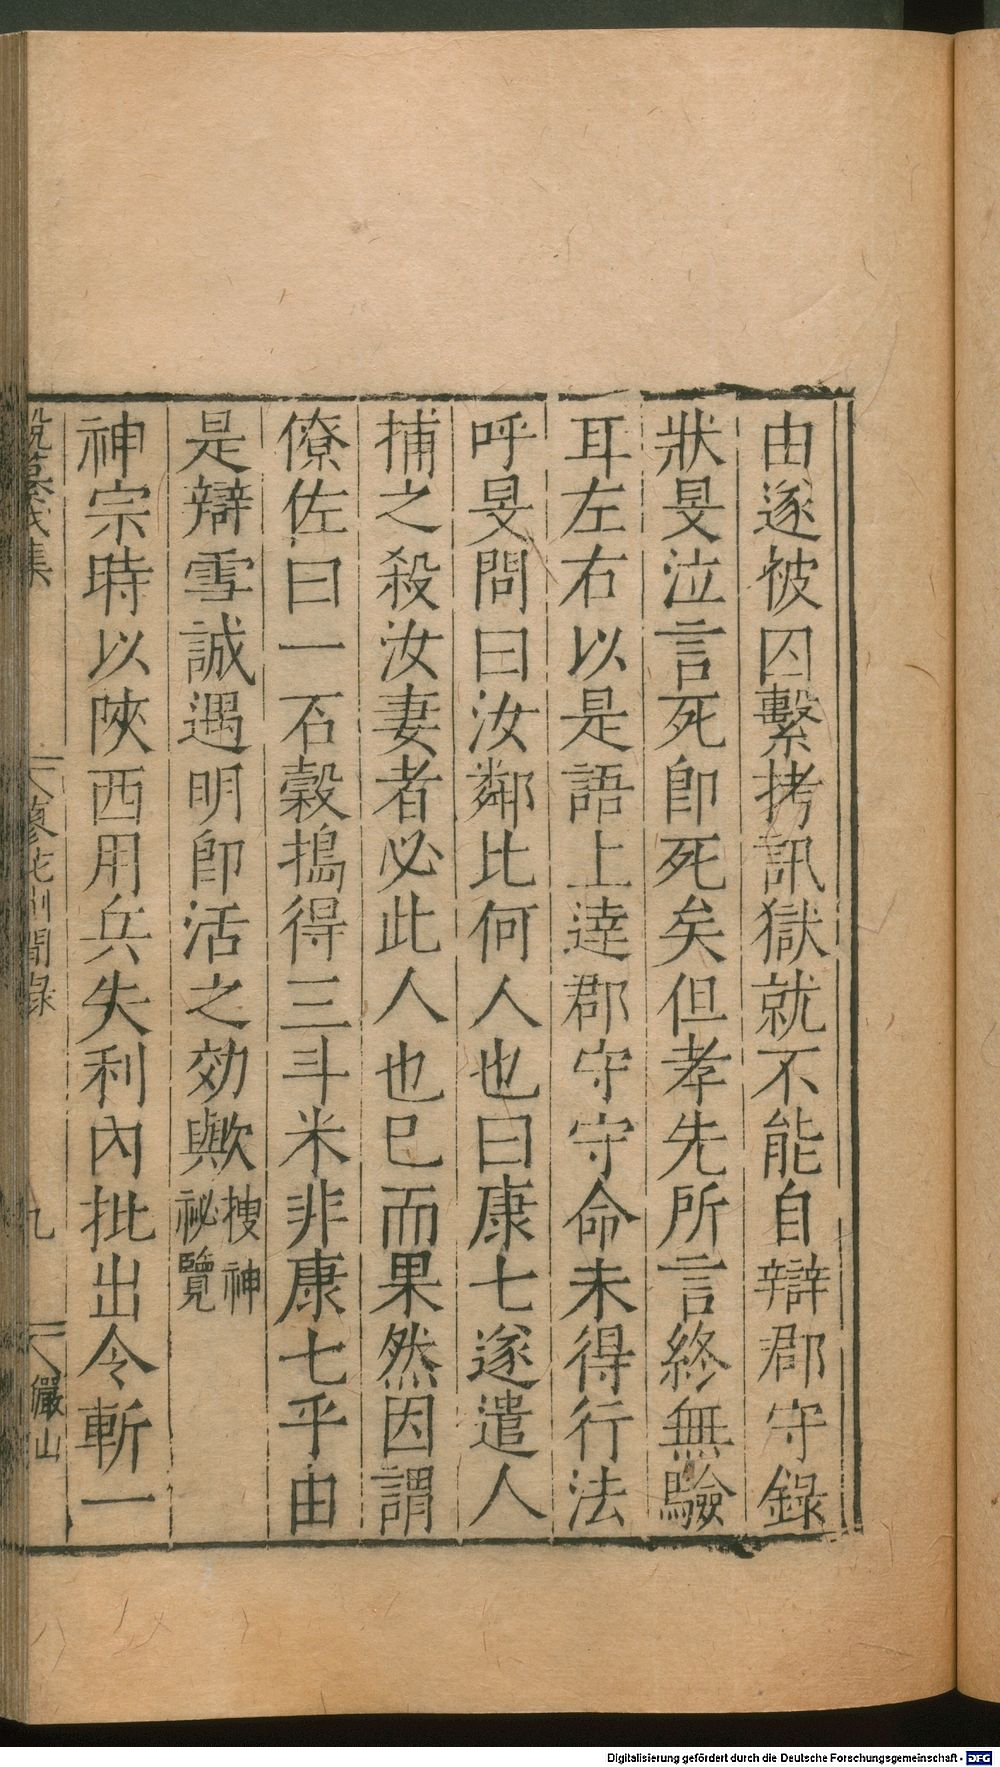 由遂被囚繫拷訊獄就不能自辯郡守錄
狀旻泣言死卽死矣但孝先所言終無驗
耳左右以是語上達郡守守命未得行法
呼旻問曰汝鄰比何人也曰康七遂遣人
捕之殺汝妻者必此人也已而果然因謂
僚佐曰一石穀搗得三斗米非康七乎由
是辯雪誠遇明卽活之効歟搜神
祕覽
神宗時以陝西用兵失利內批出令斬一
集
蓼花洲閒錄
九
儼山
Digitalisierung gefördert durch die Deutsche Forschungsgemeinschaft - DFG